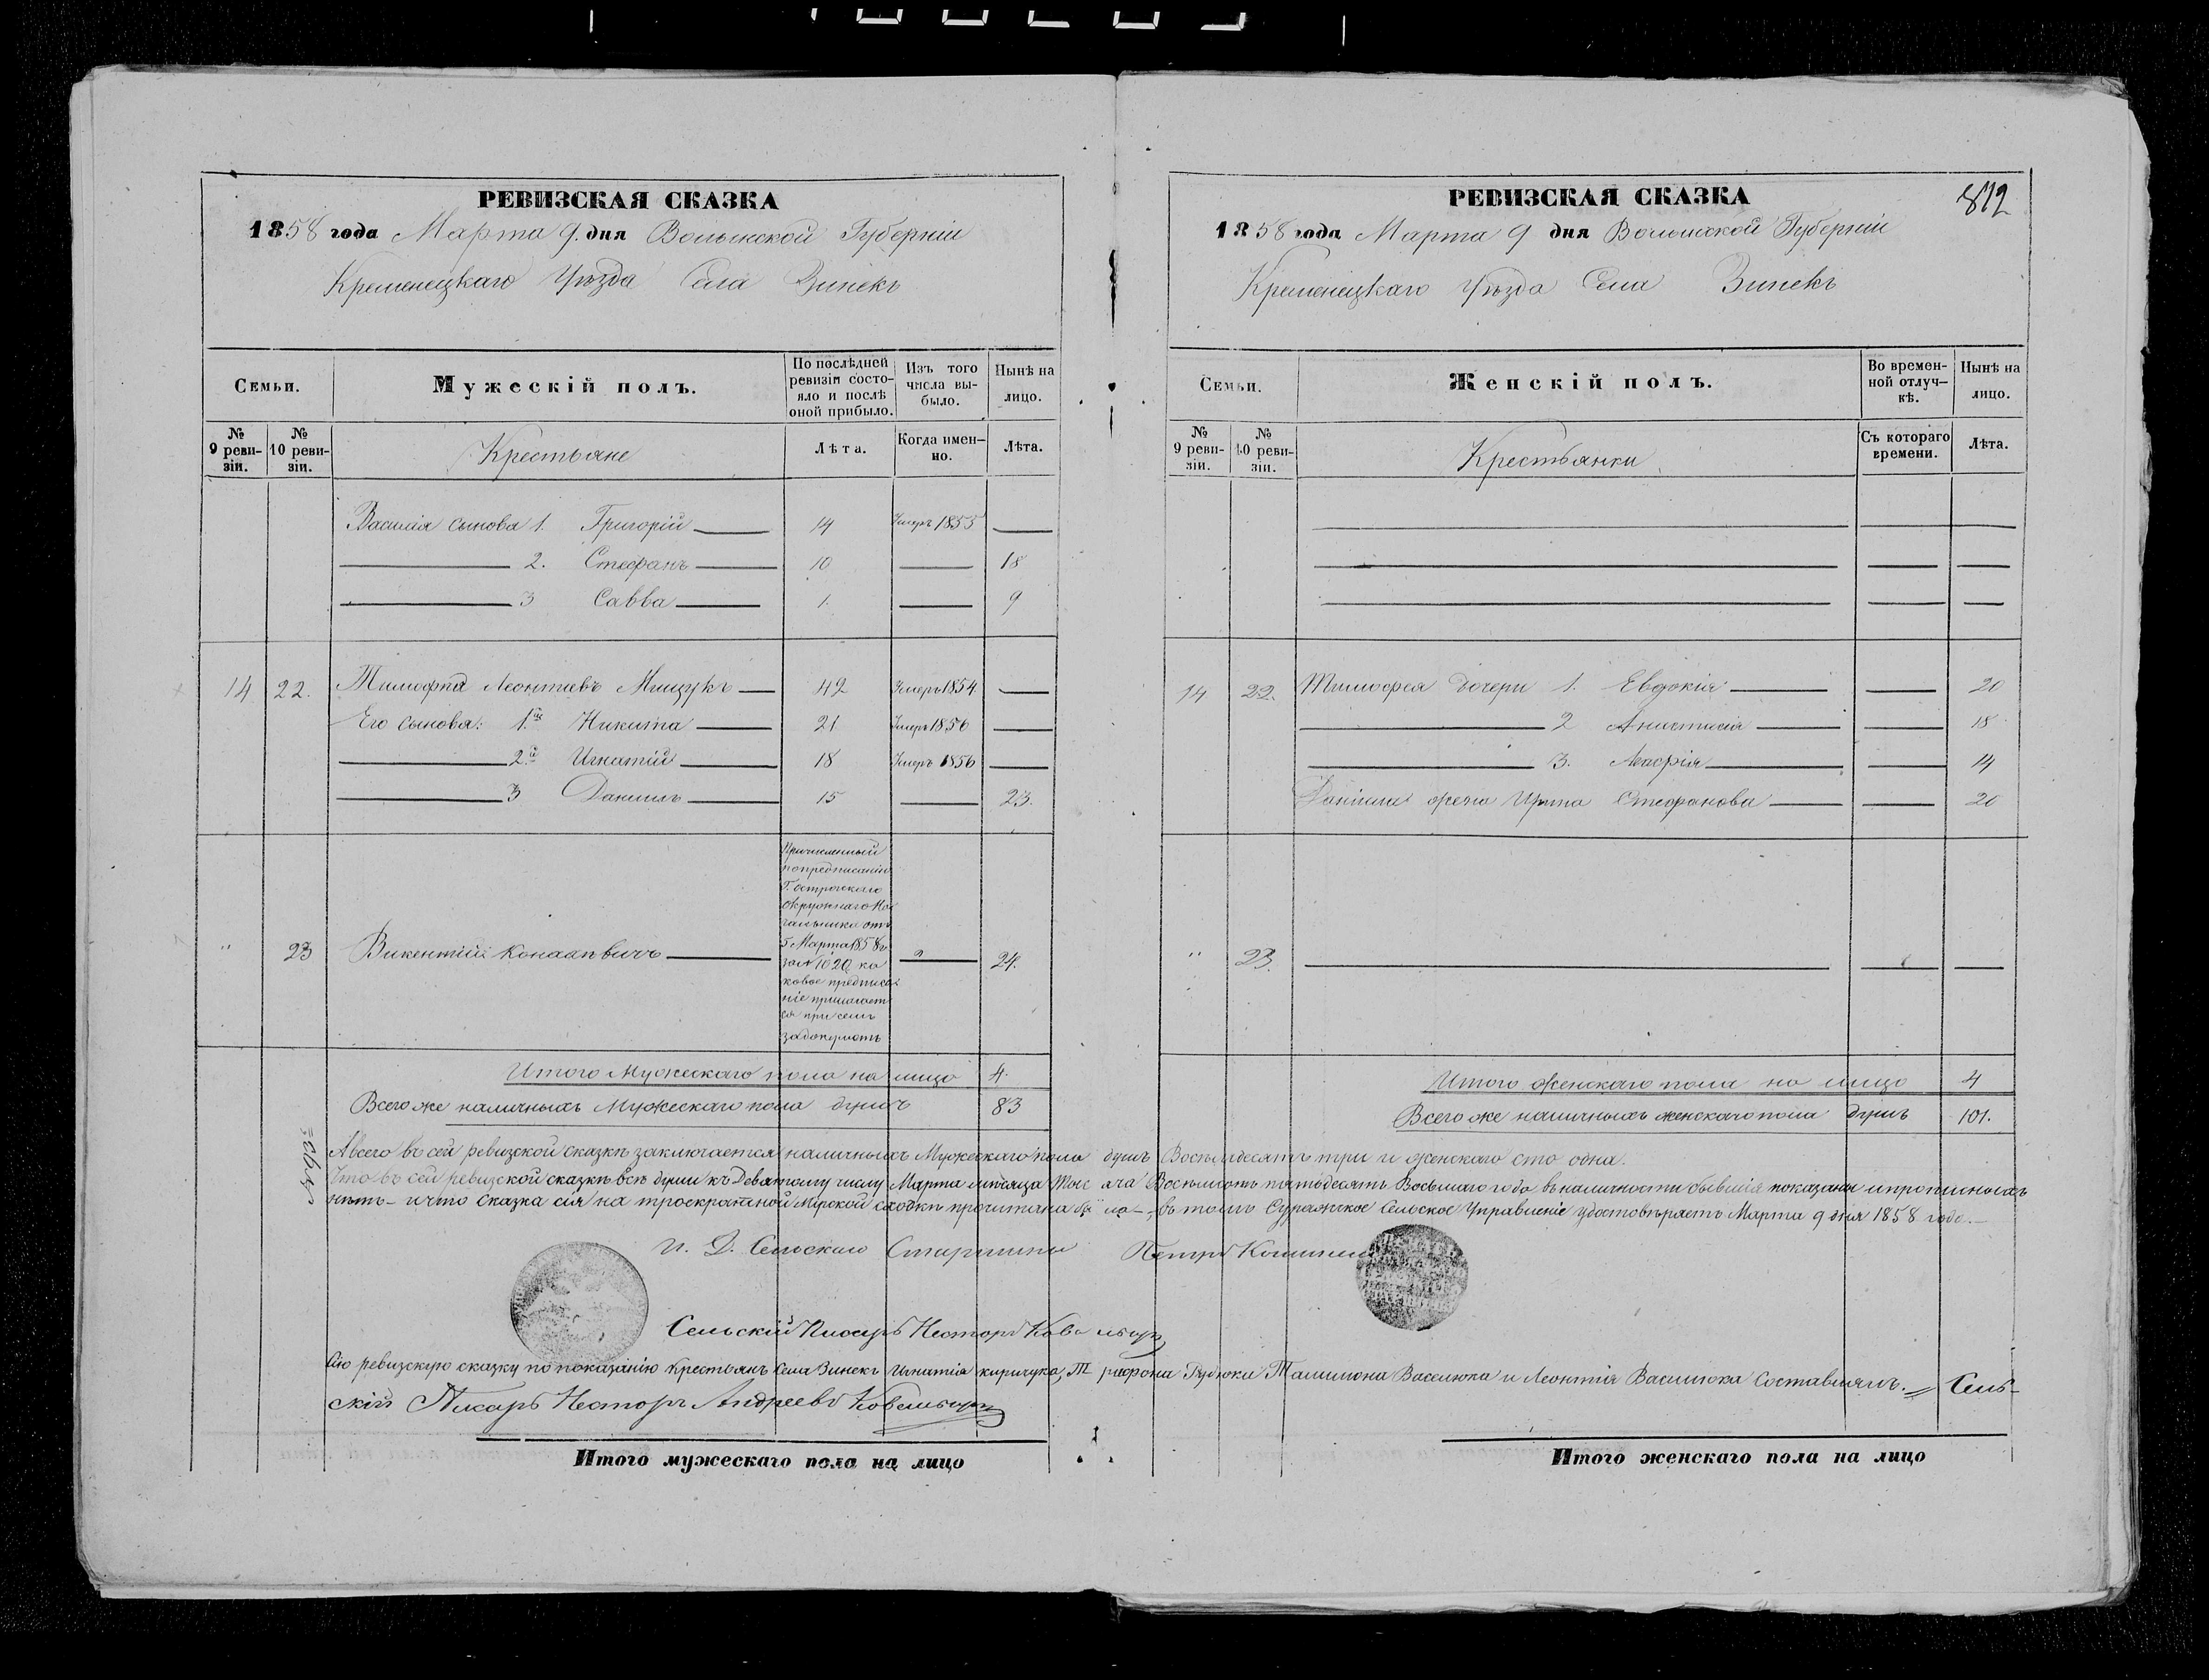 РЕВИЗСКАЯ СКАЗКА
1858 года Марта 9. дня Волынской Губерніи
Кременецкаго Уѣзда Села Зинекъ
Семьи.
Мужескій полъ.
По послѣдней ревизіи состояло и послѣ оной прибыло.
Изъ того числа выбыло.
Нынѣ на лицо.
№ 9 ревизіи.
№ 10 ревизіи.
Крестьяне
Лѣта.
Когда именно.
Лѣта.
Василія сыновья 1. Григорій 14 Умеръ 1855
2. Стефанъ 10 18
3 Савва 1. 9
14 22. Тимофѣй Леонтіевъ Мищукъ 42 Умеръ 1854
Его сыновья: 1.й Никита 21 Умеръ 1856
2.й Игнатій 18 Умеръ 1856
3 Даніилъ 15 23.
Причисленный
по предписанію
Г. Острожскаго
Окружнаго На
чальника отъ
5 Марта 1858 г.
за № 1020 ка
ковое предписа
ніе прилагает
ся при семъ
" 23 Викентій 24.
Итого Мужескаго пола на лицо 4.
Всего же наличныхъ Мужескаго пола душъ 83
РЕВИЗСКАЯ СКАЗКА
812
1858 года Марта 9 дня Волынской Губерніи
Кременецкаго Уѣзда Села Зинекъ
Семьи.
Женскій полъ.
Во временной отлучкѣ.
Нынѣ на лицо.
№ 9 ревизіи.
№ 10 ревизіи.
Крестьянки
Съ котораго времени.
Лѣта.
14 22. Тимофея дочери 1. Евдокія 20
2 Анастасія 18
3. 14
Даніила жена Стефанова 20
" 23.
Итого женскаго пола на лицо 4
Всего же наличныхъ женскаго пола душъ 101.
А всего въ сей ревизской сказкѣ заключается наличныхъ Мужескаго пола душъ Восемьдесятъ три и женскаго сто одна.
Что въ сей ревизской сказкѣ всѣ души къ Девятому числу Марта мѣсяца Тысяча Восемьсотъ пятьдесятъ Восьмаго года въ наличности бывшія показаны и прописныхъ
нѣтъ - и что сказка сія на троекратной Мірской сходкѣ прочитана была -, въ томъ Суражское Сельское Управленіе удостовѣряетъ Марта 9 дня 1858 года.-
И. Д. Сельскаго Старшины Петръ
Сельскій Писарь Несторъ
Сію ревизскую сказку по показанію крестьянъ Села Зинекъ Игнатія Киричука, Трифона Рудюка Василюка и Леонтія Василюка Составлялъ. = Сель-
скій Писарь Несторъ Андреевъ
Итого мужескаго пола на лицо
Итого женскаго пола на лицо